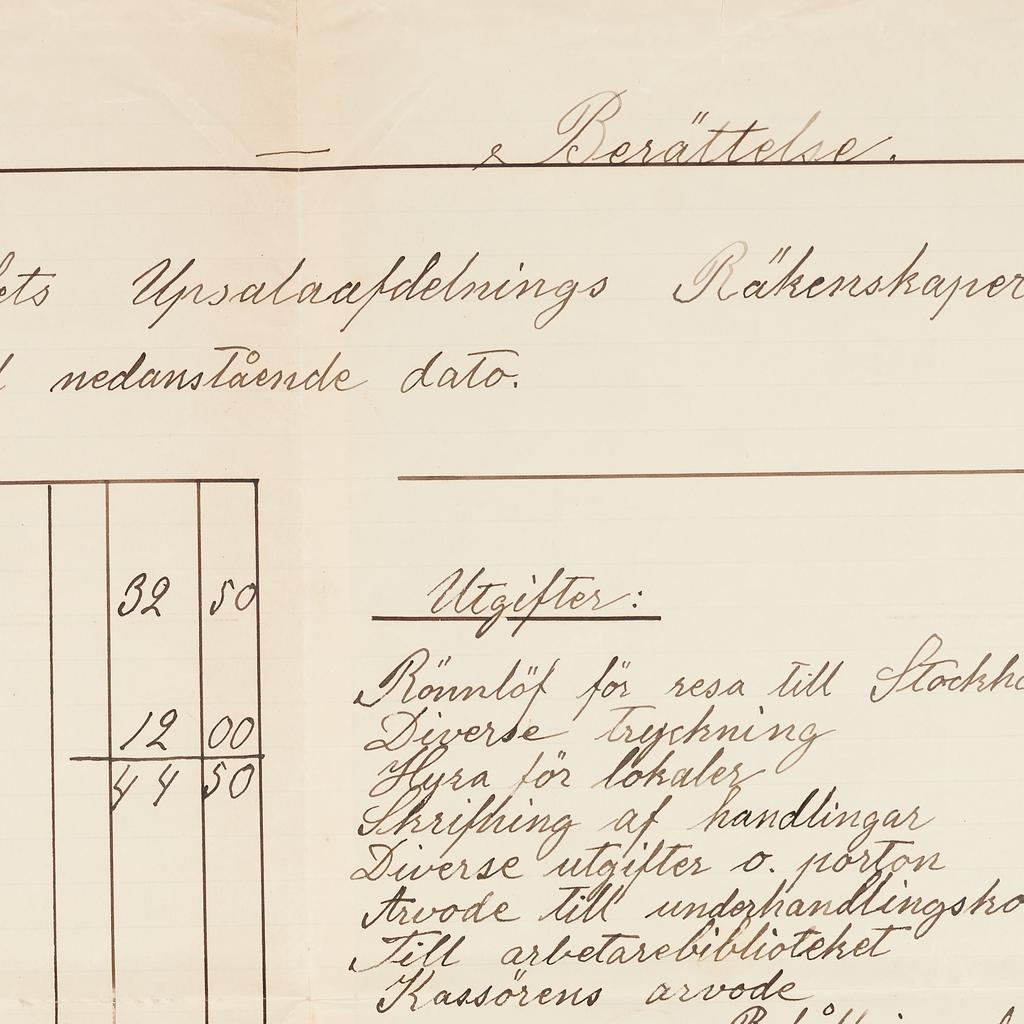 Berättelse.
ets Upsalaafdelnings Räkenskaper
nedanstående dato.
32 50
12 00
44 50
Utgifter:
Rönnlöf för resa till Stockho
Diverse tryckning
Hyra för lokaler
Skrifning af handlingar
Diverse utgifter o. porton
Arvode till underhandlingsko
Till arbetarebiblioteket
Kassörens arvode